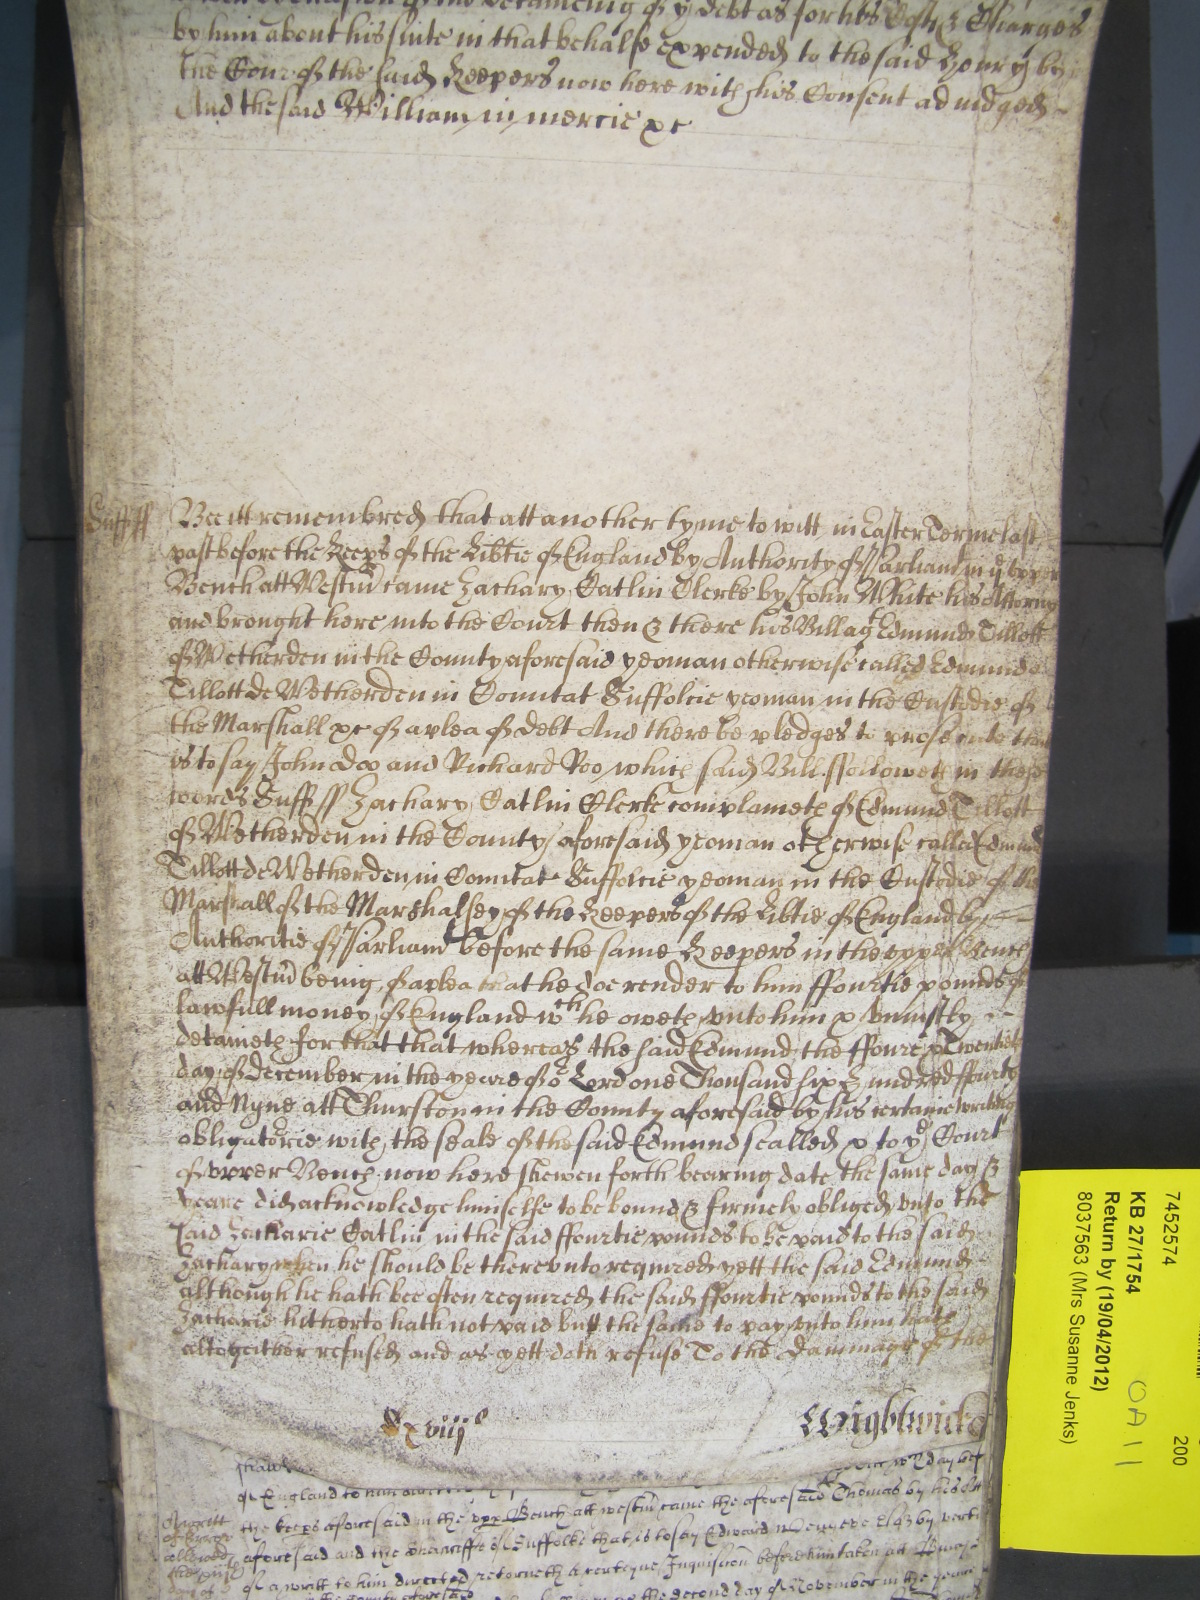 detaineing of ye debt as for his Costs & Charges
by him about his suite in that behalfe expended to the said Henry by
the Court of the said Keepers now here with his Consent adiudged
And the said William in mercie &c
Suff ff Bee itt remembred that att another tyme to witt in Easter Terme last
past before the Keeps of the Libtie of England by Authority of Parliamt in ye upper
Bench att Westm came Zachary Catlin Clerke by John White his Attorny
and brought here into the Court then & there his Bill agt Edmund Tillott
of Wetherden in the County aforesaid yeoman otherwise called Edmund
Tillott de Wetherden in Comitat Suffolcie yeoman in the Custodie of
the Marshall &c of a plea of debt And there be pledges to prosecute that
is to say John Doo and Richard Roo which said Bill followeth in these
words Suff ff Zachary Catlin Clerke complaineth of Edmund Tillott
of Wetherden in the County aforesaid yeoman otherwise called Edmund
Tillott de Wetherden in Comitat Suffolcie yeoman in the Custodie of the
Marshall of the Marshalsey of the Keepers of the Libtie of England by
Authoritie of Parliamt before the same Keepers in the upper Bench
att Westm being of a plea that he doe render to him ffourtie pounds of
lawfull money of England wch he oweth unto him & uniustly
deteineth for that that whereas the said Edmund the ffoure & Twentieth
day of December in the yeare of or Lord one Thousand six hundred ffourty
and Nyne att Thurston in the County aforesaid by his certaine writing
obligatorie with the seale of the said Edmund sealled & to ye Court
of upper Bench now here shewen forth bearing date the same day &
yeare did acknowledge himselfe to be bound & firmely obliged unto the
said Zacharie Catlin in the said ffourtie pounds to be paid to the said
Zachary when he should be thereunto required yett the said Edmund
although he hath bee often required the said ffourtie pounds to the said
Zacharie hitherto hath not paid butt the same to pay unto him hath
altogeither refused and as yett doth refuse To the dammage of the
xviijs Wightwick
of England to him
the keeps aforesaid in the upp Bench att westm came the aforesaid Thomas by his
aforesaid and the Sheariffe of Suffolke that is to say Edward Esqr by
of a writt to him directed retorneth a certeyne Inquisicon before him taken att
the second day of November in the yeare
7452574 200
KB 27/1754 OA 11
Return by (19/04/2012)
8037563 (Mrs Susanne Jenks)